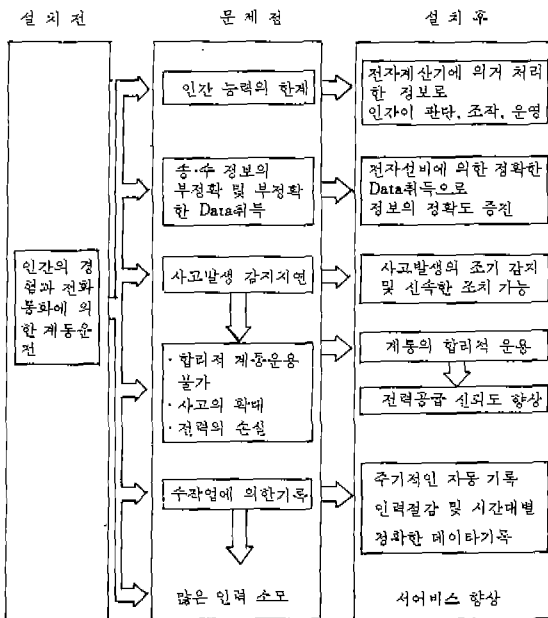 설치전
문제점
설치후
인간의 경
험과 전화
통화에 의
한 계통운
전
인간 능력의 한계
송·수 정보의
부정확 및 부정확
한 Data취득
사고발생 감지지연
· 합리적 계통운용
불가
· 사고의 확대
· 전력의 손실
수작업에 의한기록
많은 인력 소모
전자계산기에 의거 처리
한 정보로
인자이 판단, 조작, 운영
전자선비에 의한 정확한
Data취득으로
정보의 정확도 증진
사고발생의 조기 감지
및 신속한 조치 가능
계통의 합리적 운용
전력공급 신뢰도 향상
주기적인 자동 기록
인력절감 및 시간대별
정확한 데이타기록
서어비스 향상